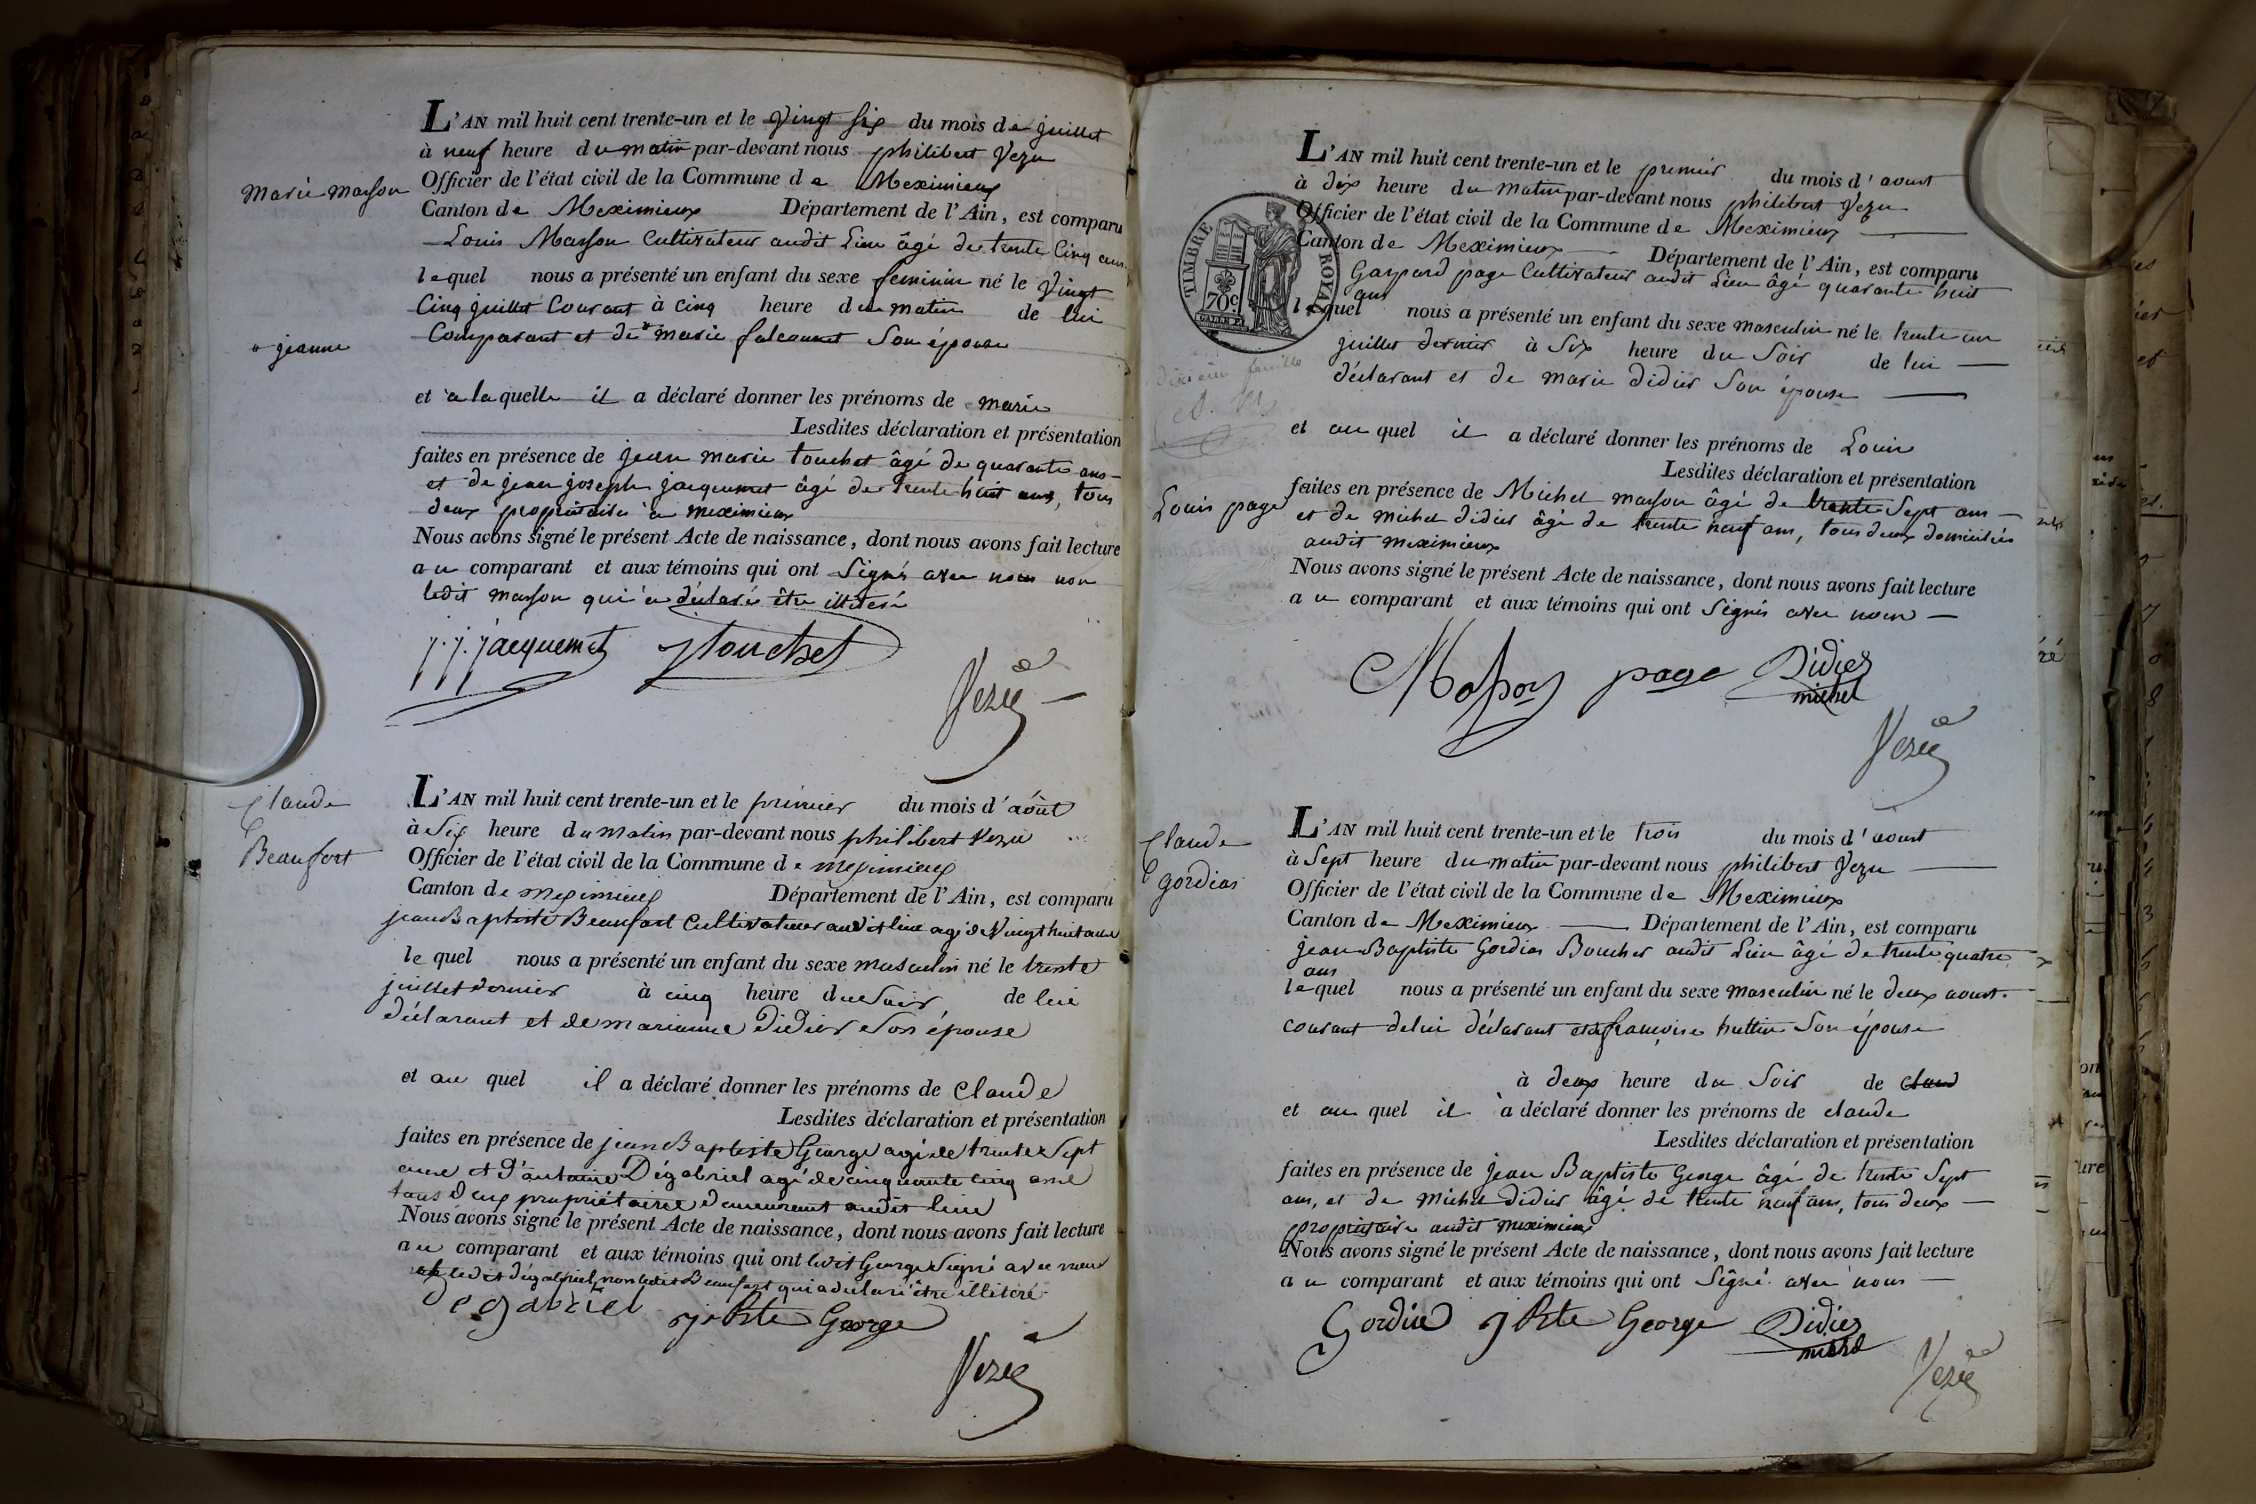 L'AN mil huit cent trente-un et le Vingt six du mois de juillet
à neuf heure du matin par-devant nous philibert Vezu
Marie Masson
Officier de l'état civil de la Commune de Meximieux
Canton de Meximieux Département de l'Ain, est comparu
Louis Masson Cultivateur audit Lieu âgé de trente Cinq ans
lequel nous a présenté un enfant du sexe feminin né le Vingt
Cinq juillet Courant à cinq heure du matin de lui
Comparant et de * marie falconnet Son épouse
* jeanne
et a laquelle il a déclaré donner les prénoms de marie
Lesdites déclaration et présentation
faites en présence de jean marie touchet âgé de quarante ans
et de jean joseph jacquemet âgé de trente huit ans, tous
deux propriétaire à meximieux
Nous avons signé le présent Acte de naissance, dont nous avons fait lecture
au comparant et aux témoins qui ont Signés avec nous non
ledit masson qui a déclaré être illiteré
j. j. jacquemet jtouchet
Vezu
Claude
Beaufort
L'AN mil huit cent trente-un et le primier du mois d'aôut
à Six heure du matin par-devant nous philibert Vezu
Officier de l'état civil de la Commune de meximieux
Canton de meximieux Département de l'Ain, est comparu
jean Baptiste Beaufort Cultivateur audit lieu agé de Vingt huit ans
lequel nous a présenté un enfant du sexe masculin né le trente
juillet dernier à cinq heure du Soir de lui
déclarant et de marianne Didier Son épouse
et au quel il a déclaré donner les prénoms de Claude
Lesdites déclaration et présentation
faites en présence de jean Baptiste George agé de trente Sept
ans et d'antoine Dégabriel agé de cinquante cinq ans
tous deux propriétaire demeurant audit lieu
Nous avons signé le présent Acte de naissance, dont nous avons fait lecture
au comparant et aux témoins qui ont ledit George Signé avec nous
ledit dégabriel non ledit Beaufort qui a déclaré être illiteré
Degabriel j Bte George
Vezu
L'AN mil huit cent trente-un et le premier du mois d'aoust
à dix heure du matin par-devant nous philibert Vezu
Officier de l'état civil de la Commune de Meximieux
Canton de Meximieux Département de l'Ain, est comparu
TIMBRE ROYAL
70c.
Gaspard page Cultivateur audit Lieu âgé quarante huit
ans
lequel nous a présenté un enfant du sexe masculin né le trente un
juillet dernier à Six heure du Soir de lui
déclarant et de marie didier Son épouse
et au quel il a déclaré donner les prénoms de Louis
Lesdites déclaration et présentation
Louis page
faites en présence de Michel masson âgé de trente Sept ans
et de michel didier âgé de trente neuf ans, tous deux domiciliés
audit meximieux
Nous avons signé le présent Acte de naissance, dont nous avons fait lecture
au comparant et aux témoins qui ont Signés avec nous
Masson page Didier
michel
Vezu
Claude
gordias
L'AN mil huit cent trente-un et le trois du mois d'aoust
à Sept heure du matin par-devant nous philibert Vezu
Officier de l'état civil de la Commune de Meximieux
Canton de Meximieux Département de l'Ain, est comparu
jean Baptiste Gordias Boucher audit Lieu âgé de trente quatre
ans
lequel nous a présenté un enfant du sexe masculin né le deux aoust
courant de lui déclarant et de françoise huttin Son épouse
à deux heure du Soir de
et au quel il a déclaré donner les prénoms de claude
Lesdites déclaration et présentation
faites en présence de jean Baptiste George âgé de trente Sept
ans, et de michel didier âgé de trente neuf ans, tous deux
propriétaire audit meximieux
Nous avons signé le présent Acte de naissance, dont nous avons fait lecture
au comparant et aux témoins qui ont Signé avec nous
Gordias j Bte George Didier
michel
Vezu